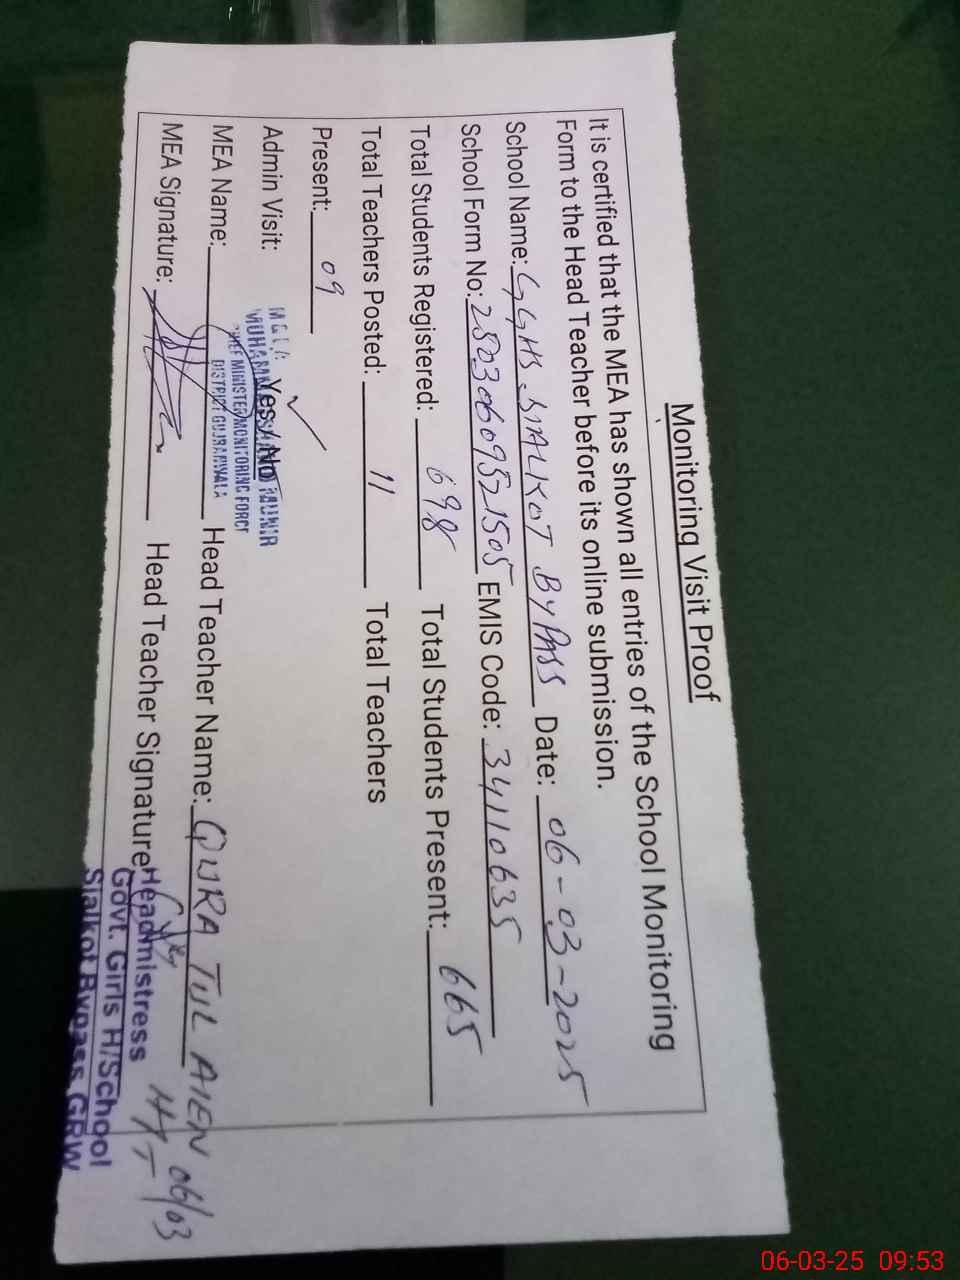 Monitoring Visit Proof
It is certified that the MEA has shown all entries of the School Monitoring
Form to the Head Teacher before its online submission.
School Name: GGHS SIALKOT BYPASS Date: 06-03-2025
School Form No: EMIS Code: 34110635
Total Students Registered: 698 Total Students Present: 665
Total Teachers Posted: 11 Total Teachers
Present: 09
Admin Visit: Yes/No
CHIEF MINISTER MONITORING FORCE
DISTRICT GUJRANWALA
MEA Name: Head Teacher Name: QURA TUL AIEN
MEA Signature: Head Teacher Signature:
06/03
Headmistress
Govt. Girls H/School
Sialkot Bypass GRW
06-03-25 09:53